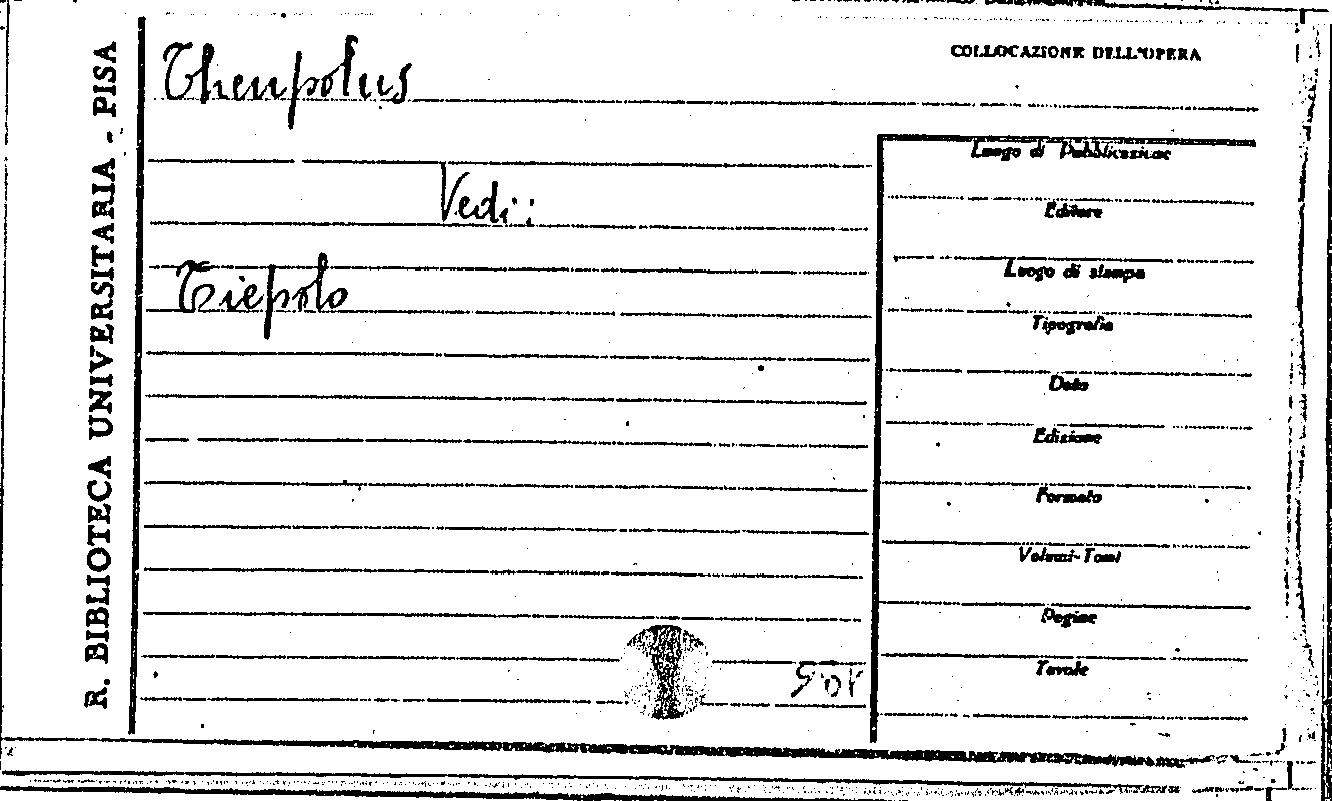 R. BIBLIOTECA UNIVERSITARIA - PISA
Theupolus
COLLOCAZIONE DELL'OPERA
Vedi:
Tiepolo
Luogo di Pubblicazione
Editore
Luogo di stampa
Tipografia
Data
Edizione
Formato
Volumi-Tomi
Pagine
Tavole